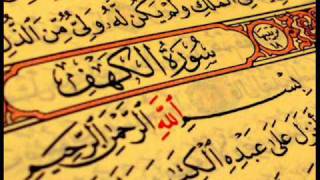 الْمُلْكِ وَلَمْ يَكُن لَّهُ وَلِيٌّ مِّنَ الذُّلِّ
سُورَةُ الْكَهْفِ
بِسْمِ اللَّهِ الرَّحْمَٰنِ الرَّحِيمِ
أَنزَلَ عَلَىٰ عَبْدِهِ